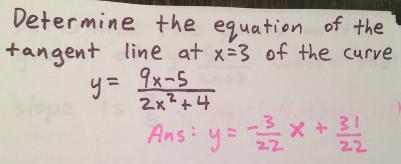 Determine the equation of the
tangent line at x=3 of the curve
y = (9x-5)/(2x²+4)
Ans: y = -3/22 x + 31/22